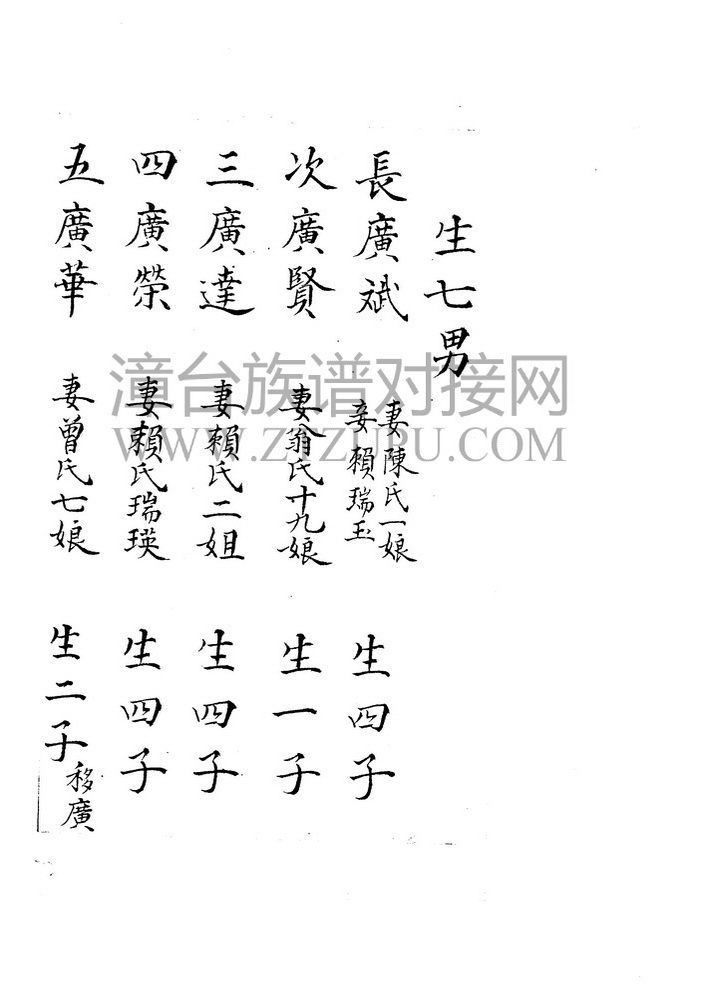 生七男
長廣斌 妻陳氏一娘 妾賴瑞玉 生四子
次廣賢 妻翁氏十九娘 生一子
三廣達 妻賴氏二姐 生四子
四廣榮 妻賴氏瑞瑛 生四子
五廣華 妻曾氏七娘 生二子 移廣
漳台族谱对接网
WWW.ZTZUPU.COM